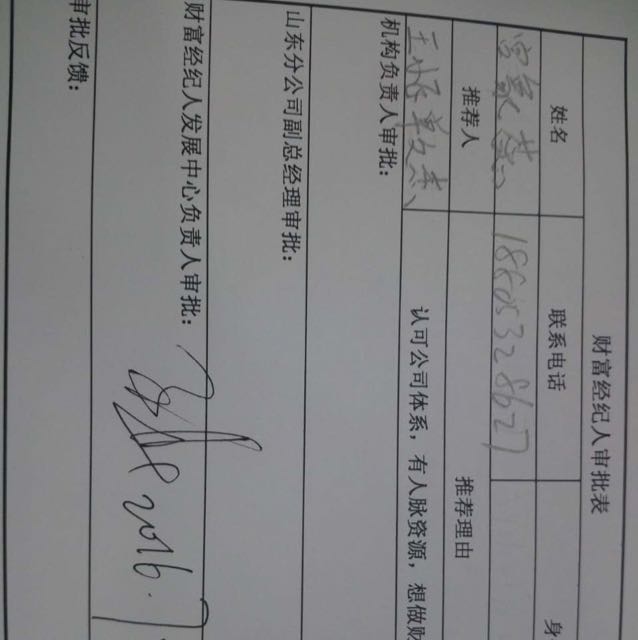 财富经纪人审批表
姓名 联系电话 身
18805328627
推荐人 推荐理由
认可公司体系，有人脉资源，想做财
机构负责人审批：
山东分公司副总经理审批：
财富经纪人发展中心负责人审批：
2016.7
审批反馈：